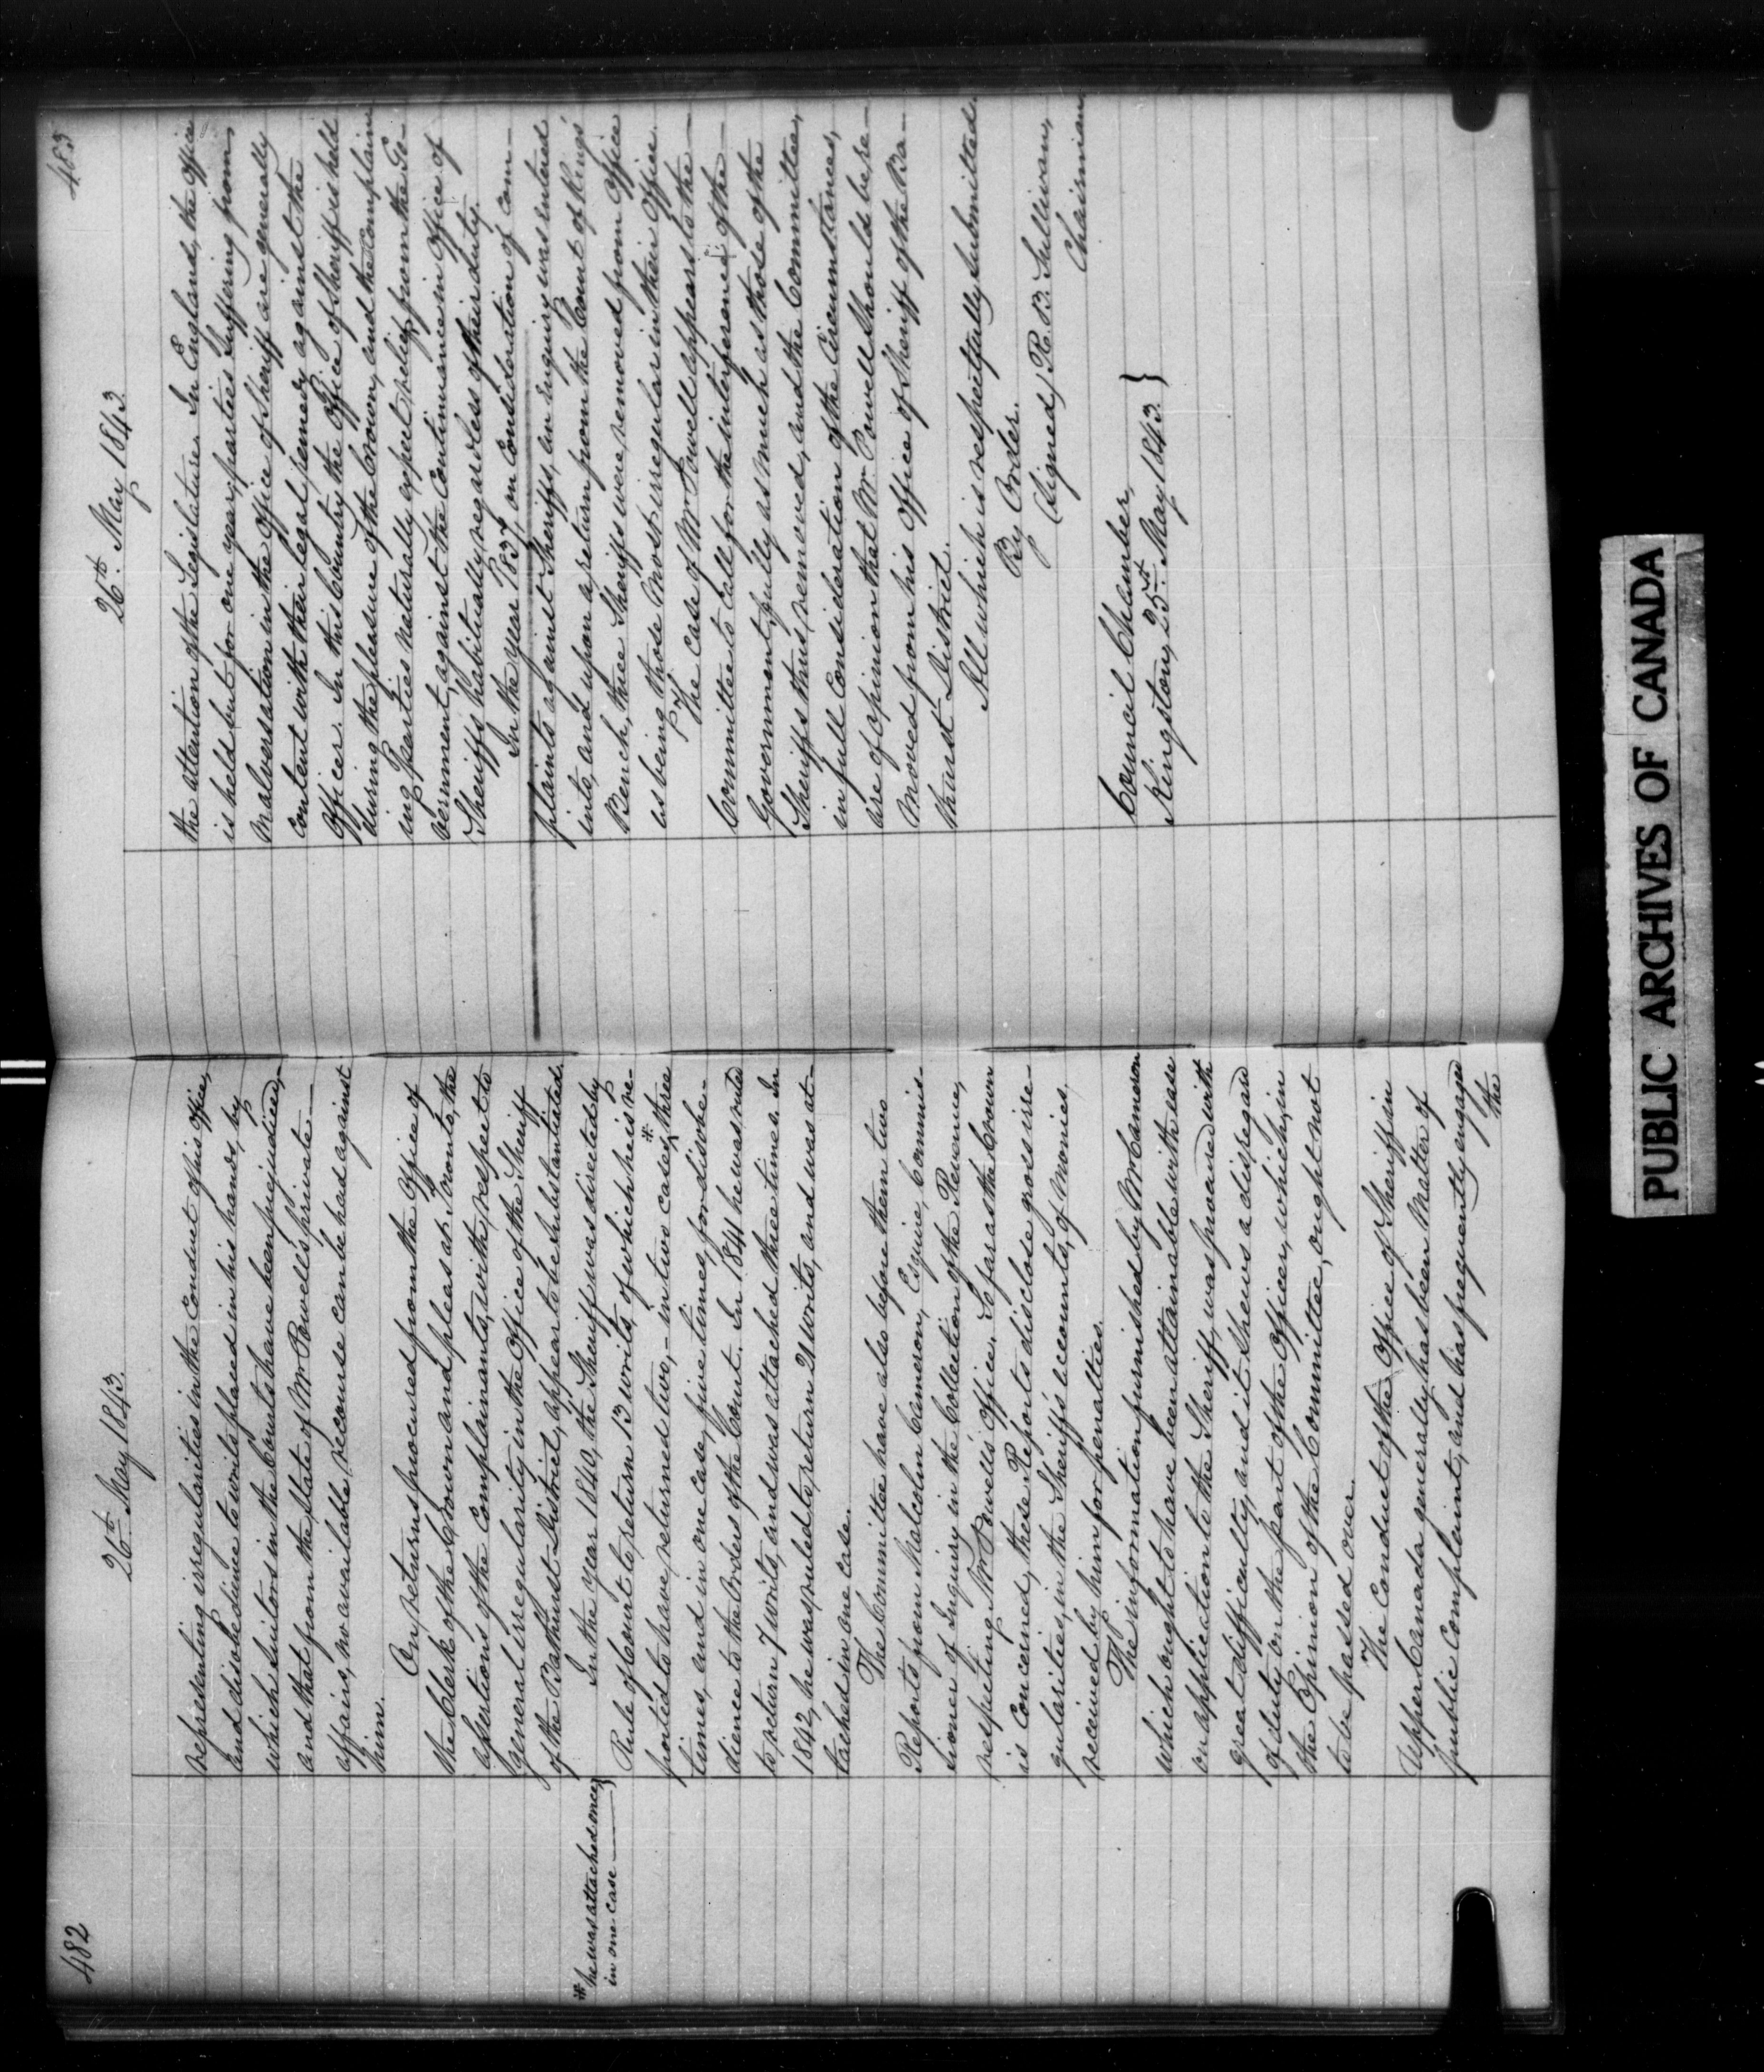 482
26th May 1843.
representing irregularities in the Conduct of his Office,
and disobedience to writs placed in his hands, by
which suitors in the Courts have been prejudiced,—
and that from the State of Mr Powell's private—
affairs, no available recourse can be had against
him.
On returns procured from the Office of
the Clerk of the Crown and pleas at Toronto, the
assertions of the Complainants, with respect to
general irregularity in the Office of the Sheriff
of the Bathurst District, appear to be substantiated.
In the year 1840, the Sheriff was directed by
Rule of Court to return 13 writs, of which he is re-
ported to have returned two,— in two cases * three
* he was attached once
in one case —
times, and in one case, five times, for disobe-
dience to the Orders of the Court. In 1841 he was ruled
to return 7 writs, and was attached three times. In
1842, he was ruled to return 21 writs, and was at-
tached in one case.
The Committee have also before them two
Reports from Malcolm Cameron, Esquire, Commis-
sioner of Inquiry in the Collection of the Revenue,
respecting Mr Powell's Office. So far as the Crown
is Concerned, these Reports disclose gross irre-
gularities, in the Sheriff's accounts, of Monies,
received by him for penalties.
The information furnished by Mr Cameron
which ought to have been attainable with ease
on application to the Sheriff, was procured with
great difficulty, and it shews a disregard
of duty on the part of the Officer, which, in
the Opinion of the Committee, ought not
to be passed over.
The Conduct of the Office of Sheriff in
Upper Canada generally has been Matter of
public Complaint, and has frequently engaged
the
483
26th May 1843
the attention of the Legislature. In England, the Office
is held but for one year, parties suffering from
Malversation in the Office of Sheriff are generally
content with their legal remedy against the
Officer. In this Country the Office of Sheriff is held
during the pleasure of the Crown, and the Complain
ing Parties naturally expect relief from the Go-
vernment, against the Continuance in Office of
Sheriffs habitually regardless of their duty.
In the year 1837, on Consideration of Com—
plaints against Sheriffs, an enquiry was entered
into, and upon a return from the Court of Kings'
Bench, three Sheriffs were removed from Office
as being those Most irregular in their Office.
The Case of Mr Powell appears to the—
Committee to Call for the interference of the—
Government, fully as much as those of the
Sheriffs thus removed, and the Committee,
in full Consideration of the Circumstances,
are of opinion that Mr Powell should be re—
moved from his Office of Sheriff of the Ba—
thurst District.
All which is respectfully submitted
By Order.
(Signed) R. B. Sullivan,
Chairman
Council Chamber,
Kingston, 25th May 1843. }
PUBLIC ARCHIVES OF CANADA